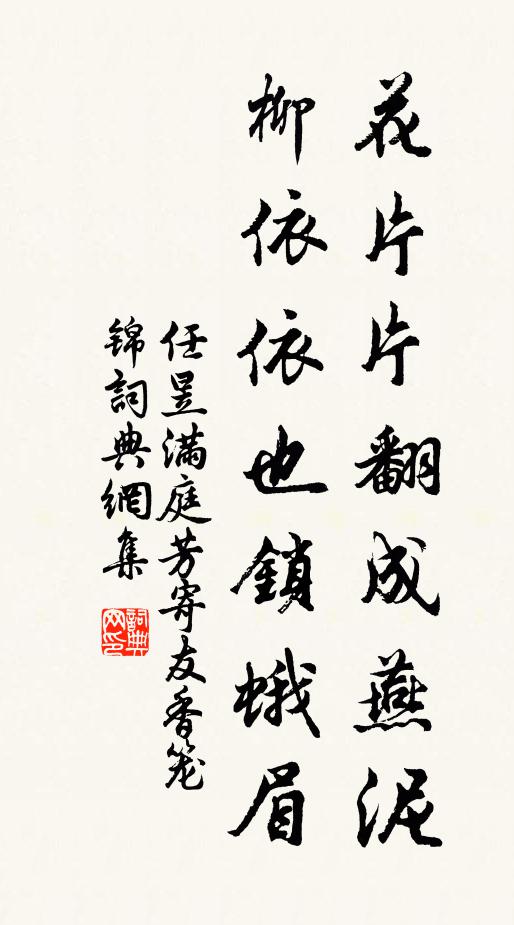 花片片翻成燕泥
柳依依也鎖蛾眉
任昱满庭芳寄友香笼
锦詞典網集
詞典
网印